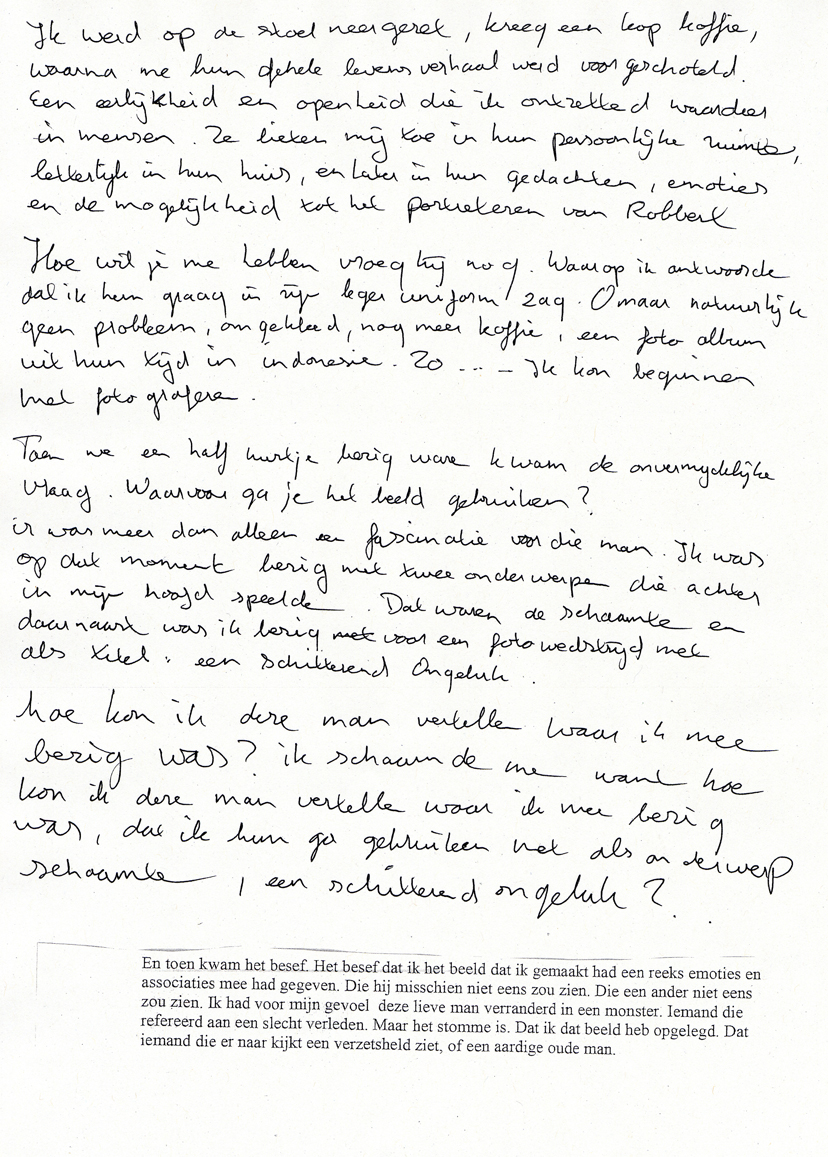 Ik werd op de stoel neergezet, kreeg een kop koffie,
waarna me hun gehele levensverhaal werd voorgeschoteld.
Een eerlijkheid en openheid die ik ontzettend waardeer
in mensen. Ze lieten mij toe in hun persoonlijke ruimte,
letterlijk in hun huis, en later in hun gedachten, emoties
en de mogelijkheid tot het portreteren van Robbert
Hoe wil je me hebben vroeg hij nog. Waarop ik antwoorde
dat ik hem graag in zijn leger uniform zag. O maar natuurlijk
geen probleem, omgekleed, nog meer koffie, een foto album
uit hun tijd in indonesie. Zo ... - Ik kon beginnen
met fotograferen.
Toen we een half uurtje bezig ware kwam de onvermydelijke
vraag. Waarvoor ga je het beeld gebruiken?
ir was meer dan alleen een fascinatie voor die man. Ik was
op dat moment bezig met twee onderwerpen die achter
in mijn hoofd speelde. Dat waren de schaamte en
daarnaast was ik bezig met voor een fotowedstrijd met
als titel: een schitterend Ongeluk.
hoe kon ik deze man vertelle waar ik mee
bezig was? ik schaamde me want hoe
kon ik deze man vertelle waar ik mee bezig
was, dat ik hem ga gebruiken met als onderwerp
schaamte, een schitterend ongeluk?
En toen kwam het besef. Het besef dat ik het beeld dat ik gemaakt had een reeks emoties en
associaties mee had gegeven. Die hij misschien niet eens zou zien. Die een ander niet eens
zou zien. Ik had voor mijn gevoel deze lieve man verranderd in een monster. Iemand die
refereerd aan een slecht verleden. Maar het stomme is. Dat ik dat beeld heb opgelegd. Dat
iemand die er naar kijkt een verzetsheld ziet, of een aardige oude man.